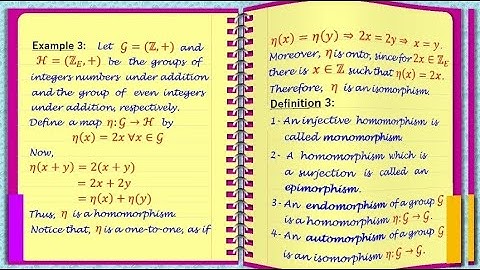 Example 3: Let 𝒢 = (ℤ, +) and
ℋ = (ℤ_E, +) be the groups of
integers numbers under addition
and the group of even integers
under addition, respectively.
Define a map η: 𝒢 → ℋ by
η(x) = 2x ∀x ∈ 𝒢
Now,
η(x + y) = 2(x + y)
= 2x + 2y
= η(x) + η(y)
Thus, η is a homomorphism.
Notice that, η is a one-to-one, as if
η(x) = η(y) ⇒ 2x = 2y ⇒ x = y.
Moreover, η is onto, since for 2x ∈ ℤ_E
there is x ∈ ℤ such that η(x) = 2x.
Therefore, η is an isomorphism.
Definition 3:
1- An injective homomorphism is
called monomorphism.
2- A homomorphism which is
a surjection is called an
epimorphism.
3- An endomorphism of a group 𝒢
is a homomorphism η: 𝒢 → 𝒢.
4- An automorphism of a group 𝒢
is an isomorphism η: 𝒢 → 𝒢.